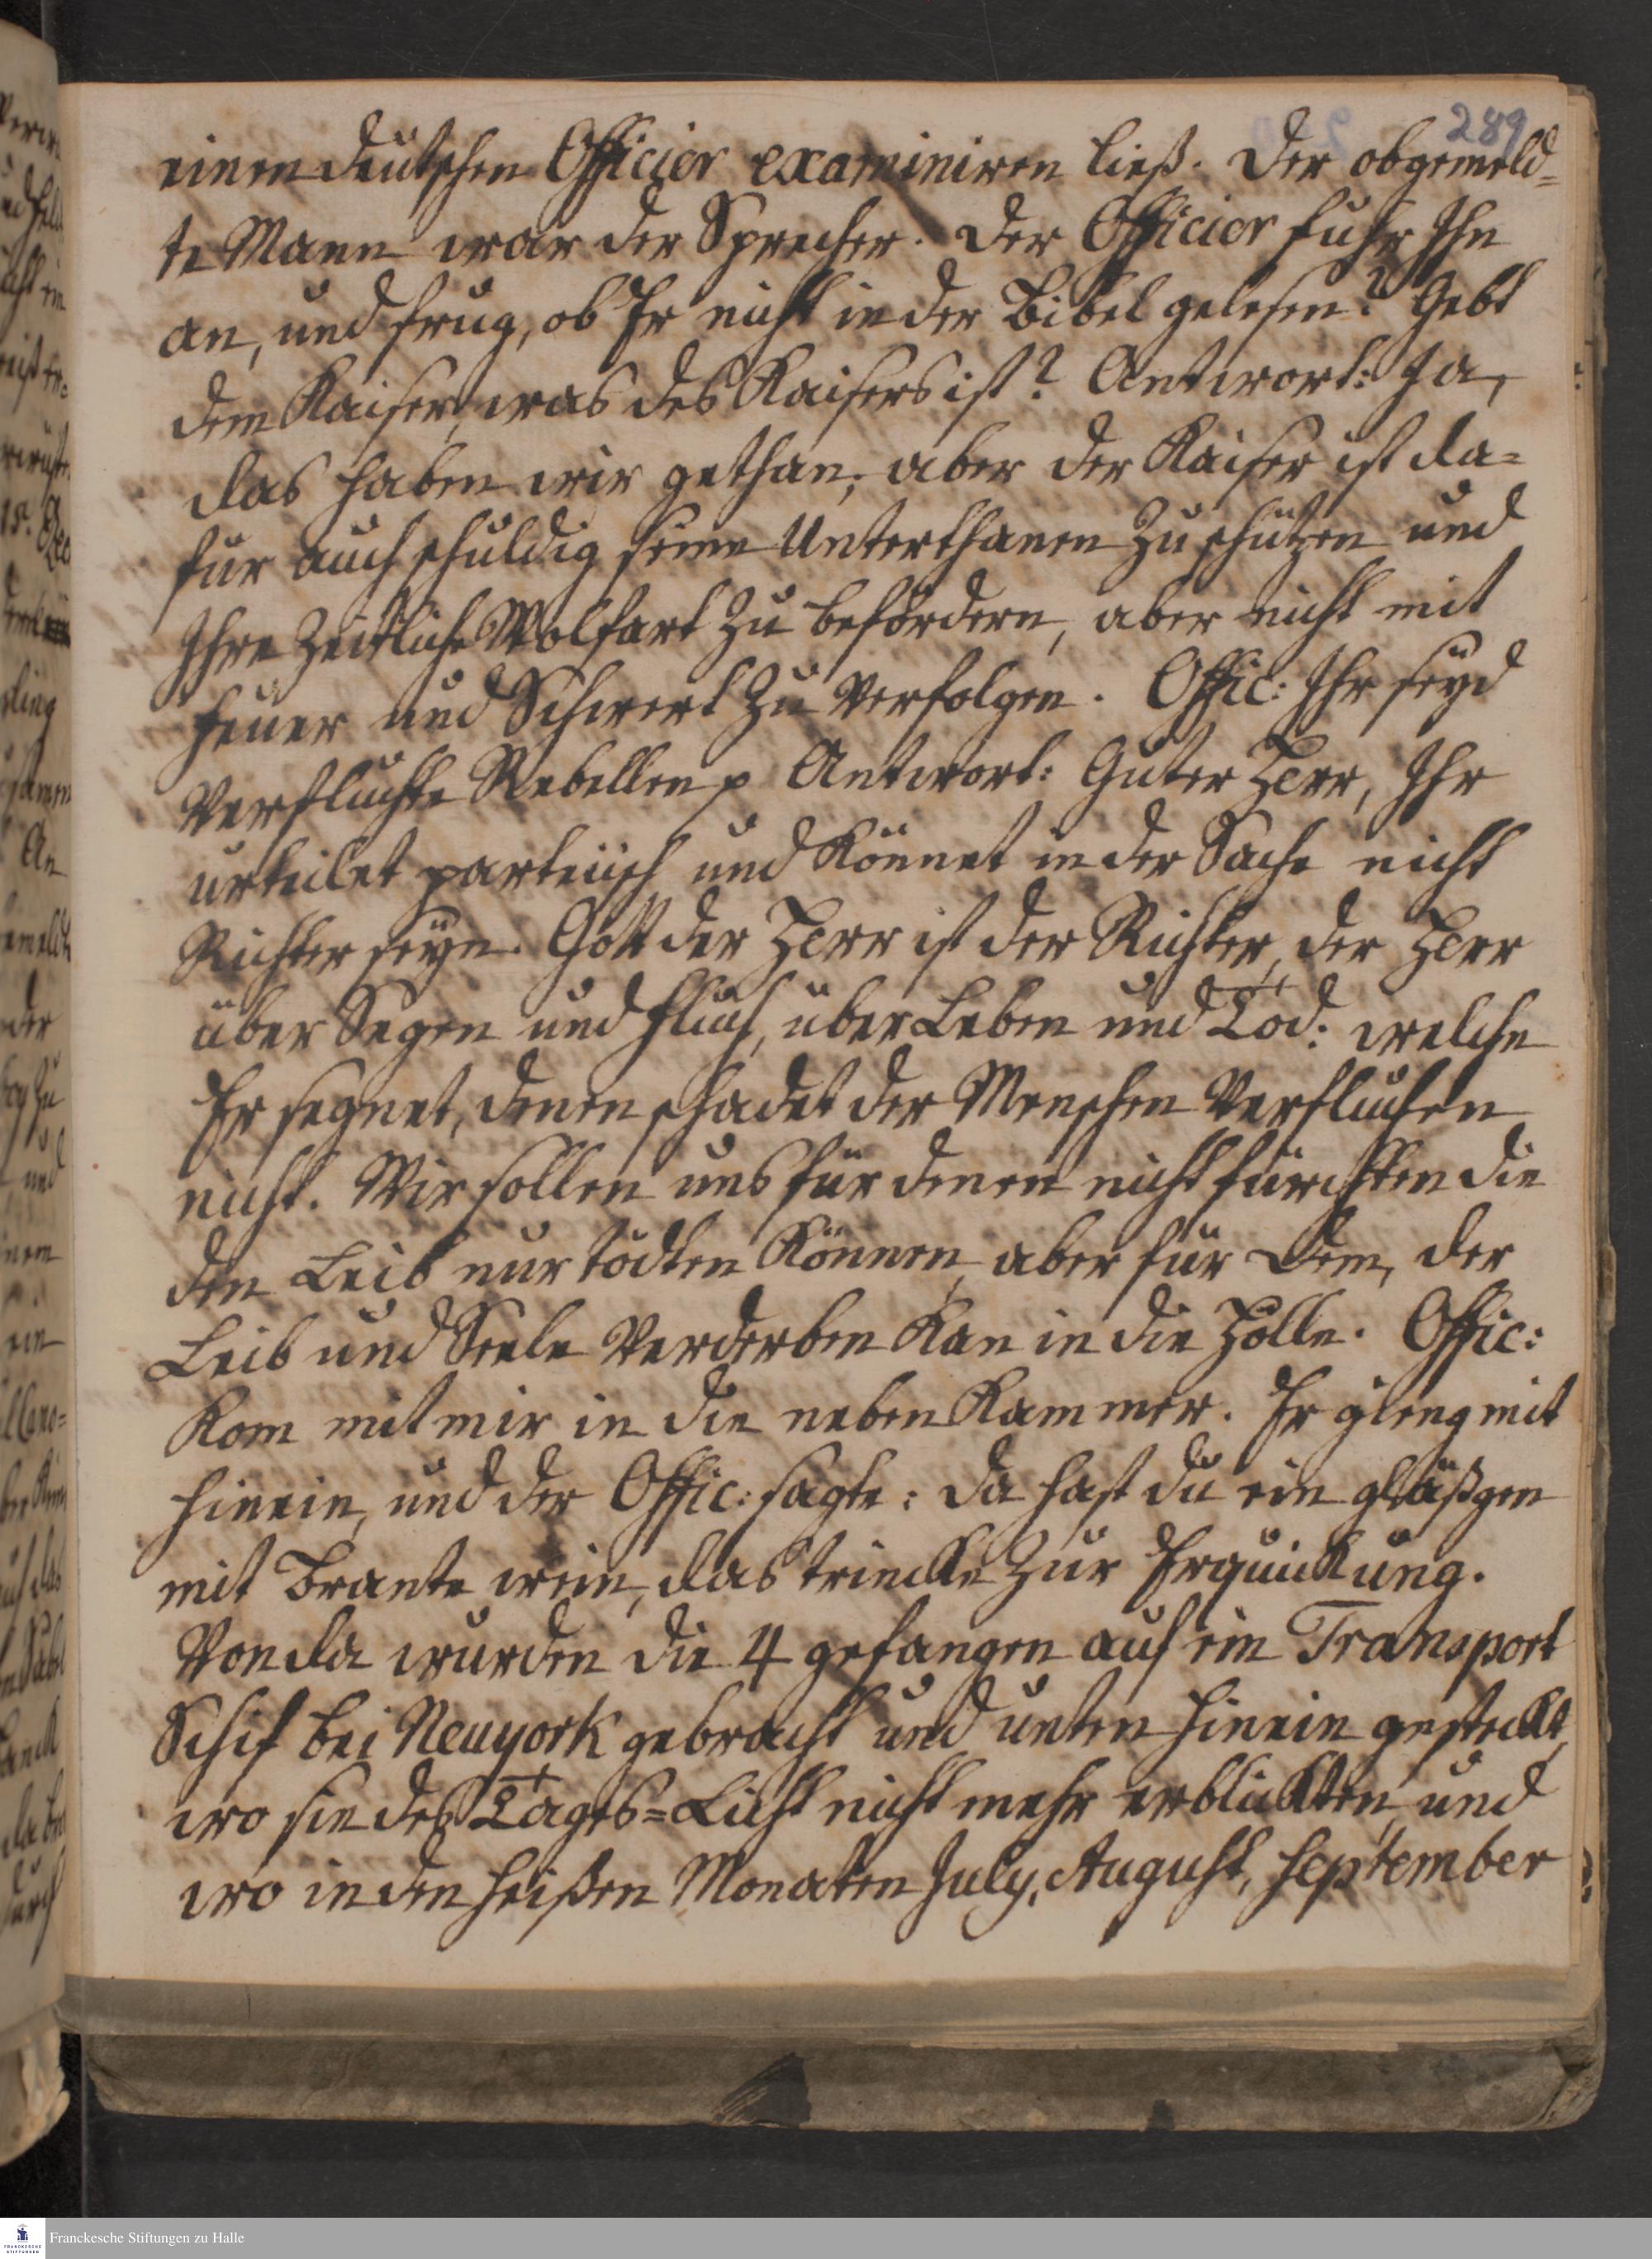 289
einem deutschen Officier examiniren ließ. Der obgemeld=
te Mann war der Sprecher. Der Officier fuhr Ihn
an, und frug, ob Er nicht in der Bibel gelesen? Gebt
dem Kaiser, was des Kaisers ist? Antwort: Ja,
das haben wir gethan, aber der Kaiser ist da=
für auch schuldig seine Unterthanen zu schützen und
Ihre zeitliche Wolfart zu befördern, aber nicht mit
Feuer und Schwert zu verfolgen. Offic: Ihr seyd
verfluchte Rebellen p Antwort: Guter Herr, Ihr
urteilet parteiisch und könnet in der Sache nicht
Richter seyn. Gott der Herr ist der Richter, der Herr
über Segen und Fluch, über Leben und Tod: welche
Er segnet, denen schadet der Menschen Verfluchen
nicht. Wir sollen uns für denen nicht fürchten die
den Leib nur tödten können, aber für Dem, der
Leib und Seele verderben kan in die Hölle. Offic:
Kom mit mir in die neben Kammer. Er gieng mit
hinein, und der Offic: sagte: da hast du ein gläßgen
mit Brante wein, das trincke zur Erquickung.
Von da wurden die 4 gefangen auf ein Transport
Schif bei Neuyork gebracht und unten hinein gesteckt,
wo sie des Tages=Licht nicht mehr erblickten, und
wo in den heißen Monaten July, August, September
Franckesche Stiftungen zu Halle